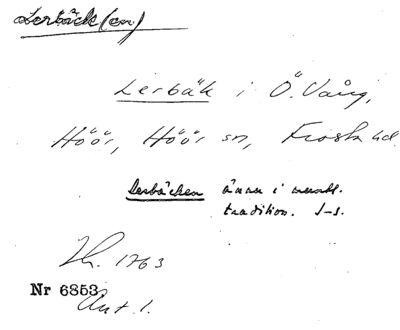 Lerbäck(en)
Lerbäk i Ö. Vång,
Höör, Höör sn, Frosta hd.
Lerbäcken ännu i muntl.
tradition. J-s.
1763
Nr 6853
Ant. 1.